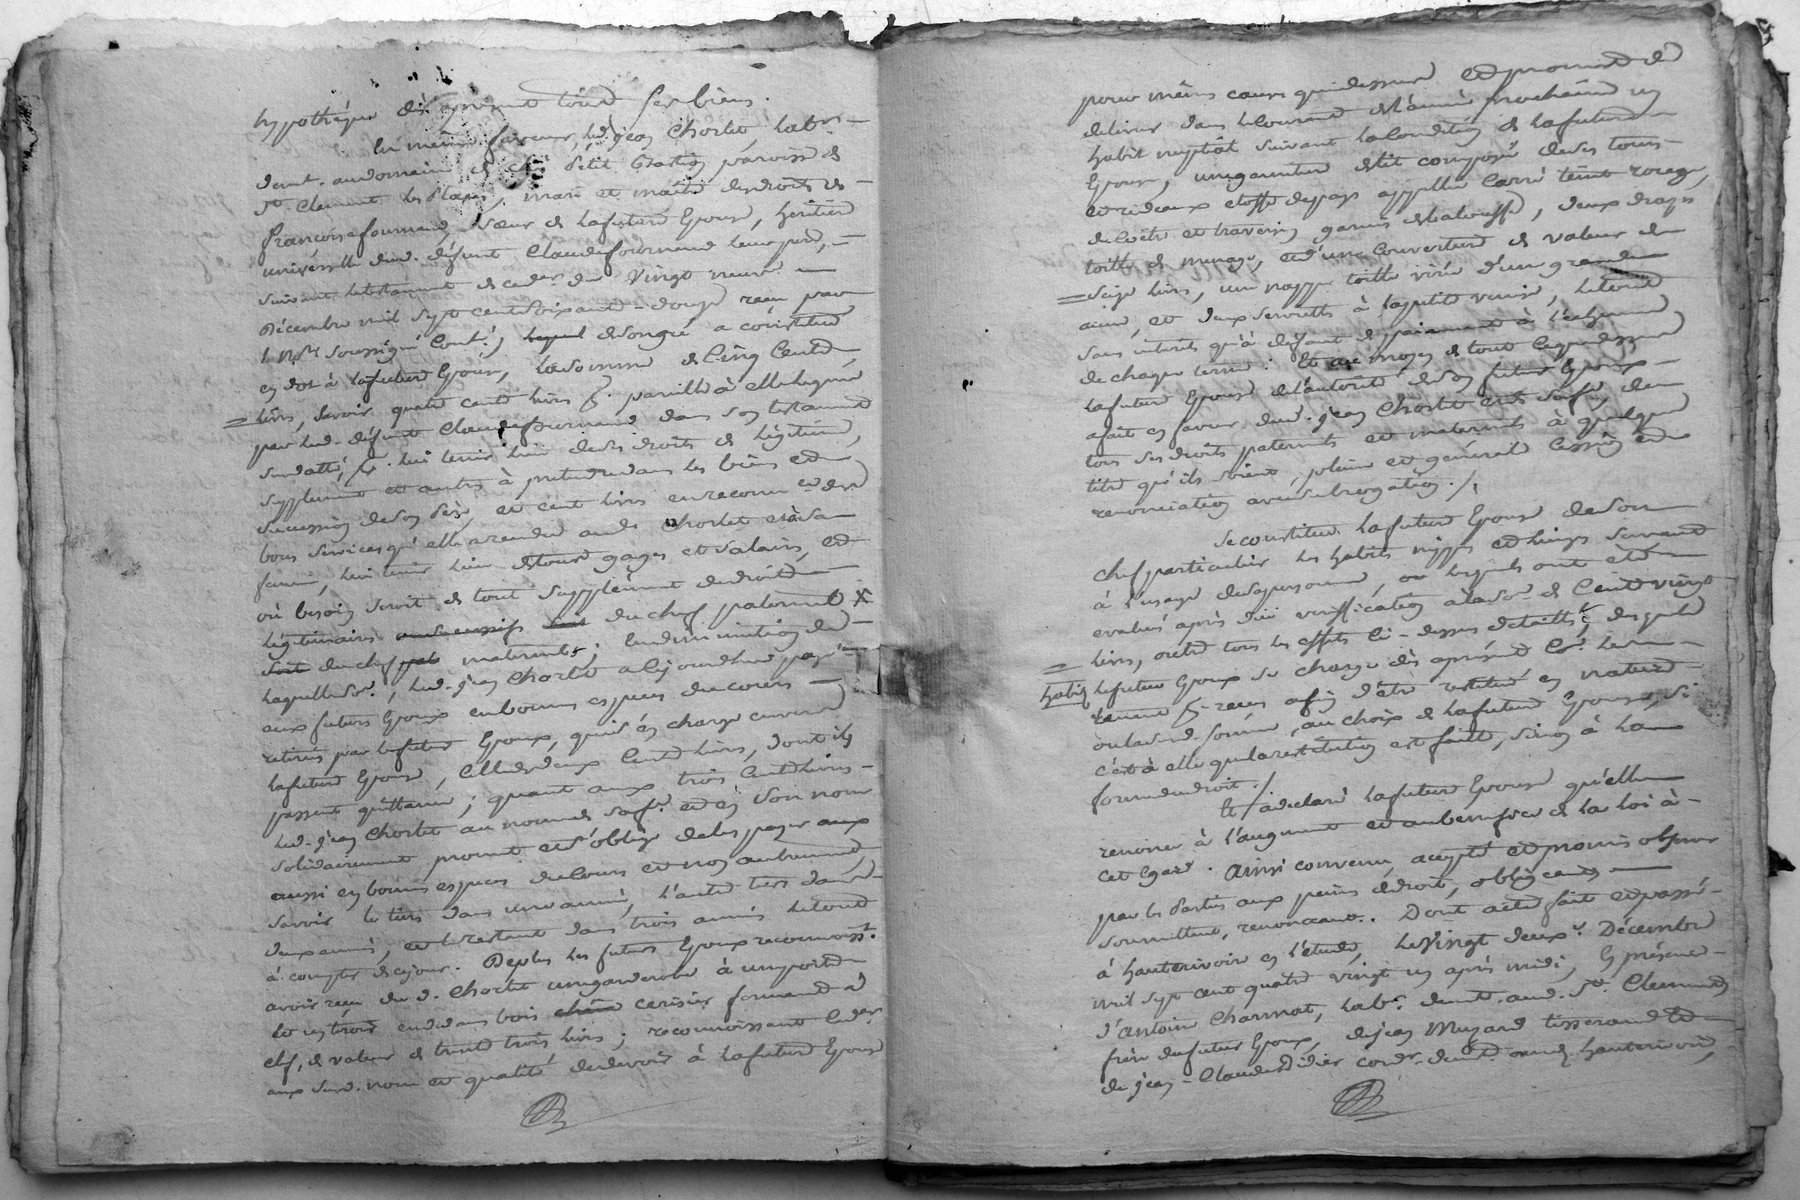 hypothéque dès àprésent tous ses biens.
En même faveur, led. jean Chorlet labr. —
demt. au domaine de chés Petit Graty paroisse de
St. Clement les Places, mari et maitre des droits de —
françoise fournand, sœur de la future Epouse, heritiere
universelle dud. défunt Claude fournand leur pere, —
suivant le testament de ced.er du vingt neuf —
Décembre mil sept cent soixante-douze reçu par
le Nre. soussigné Contlé; lequel de son gré a constitué
en dot à la future Epouse, la somme de Cinq Cents
livres, savoir quatre cents livres p. pareille à elle leguée
par led. défunt Claude fournand dans son testament
susdatté, p. lui tenir lieu de ses droits de légitime,
supplement et autres à pretendre dans les biens et
succession de son Pere, et cent livres en reconn.ce des
bons services qu'elle a rendu aud. Chorlet et à sa
famille, lui tenir lieu de tous gages et salaires, et
où besoin seroit de tout supplément de droits
légitimaires du chef paternel X
soit du chef maternel; en diminution de —
laquelle So.e, led. jean Chorlet a cejourd'hui payé
aux futurs Epoux en bonnes espéces du cours —
retirés par le futur Epoux, qui s'en charge envers
la future Epouse, Celle de deux Cents livres, dont ils
passent quittance; quant aux trois Cents livres —
led. jean Chorlet au nom de sa fe. et en son nom
solidairement promet et s'oblige de les payer aux
aussi en bonnes espéces du Cours et non autrement,
savoir le tiers dans une année, l'autre tiers dans
deux années, et le restant dans trois années le tout
à compter de ce jour. De plus les futurs Epoux reconnoisst.
avoir reçu du d. Chorlet une garderobe à une porte
et un tiroir en dedans bois chêne cerisier fermant à
clef, de valeur de trente trois livres; reconnoissant led.er
aux susd. nom et qualité de devoir à la future Epouse
pour mêmes causes que dessus et promet de
delivrer dans le courant de l'année prochaine un
habit nuptial suivant la Condition de la future
Epouse, une garniture de lit composée de ses tours
et rideaux etoffe de pays appellée Carré teint rouge,
de Coëtre et traversin garnis de balouffe, deux draps
toille de menage, et d'une couverture de valeur de
Seize livres, une nappe toille virée d'une grande
aune, et deux serviettes à la petite venise, le tout
sans interets qu'à défaut de paiement à l'échéance
de chaque terme: Et au moyen de tout ce que dessus
la future Epouse de l'autorité de son futur Epoux —
a fait en faveur dud. jean Chorlet et de sa fe., de
tous ses droits paternels et maternels à quelque
titre qu'ils soient, pleine et générale Cession et
renonciation avec subrogation./.
Se constitue la future Epouse de son
chef particulier les habits nippes et linges servant
à l'usage de sa personne, où lesquels ont été
evalués après dûe verification à la So.e de Cent vingt
livres, outre tous les effets Ci-dessus detaillés; desquels
habits le futur Epoux se charge dès àprésent Co.e les
tenant p. reçus afin d'être restitués en nature
ou lad. somme, au choix de la future Epouse, si
c'est à elle que la restitution est faite, sinon à la
forme du droit./
Et a declaré la future Epouse qu'elle
renonce à l'augment et au benefice de la loi à —
cet Egard. Ainsi convenu, accepté et promis observer
par les Parties aux peines de droit, obligeant —
soumettant, renonceant.. Dont acte fait et passé
à hauterivoire en l'étude, le vingt deux. Décembre
mil sept cent quatre vingt un après midi, En présence
d'Antoine Charmat, labr. demt. aud. St. Clement
frere du futur Epoux, de jean Muzard tisserand et
de jean-Claude Didier cordr. demt. aud. hauterivoire,